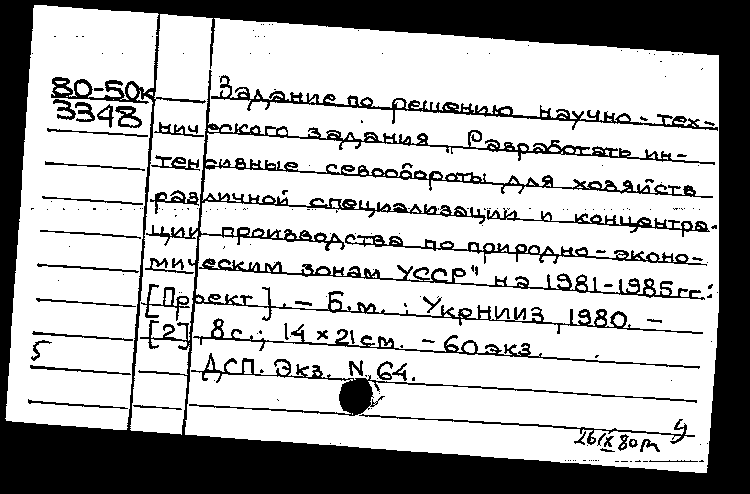 80-50к
3348
Задание по решению научно-тех-
нического задания „Разработать ин-
тенсивные севообороты для хозяйств
различной специализации и концентра-
ции производства по природно-эконо-
мическим зонам УССР" на 1981-1985 гг.:
[Проект]. – Б.м.: УкрНИИЗ, 1980. –
[2], 8 с.; 14 × 21 см. – 60 экз.
ДСП. Экз. N 64.
5
26 IX 80